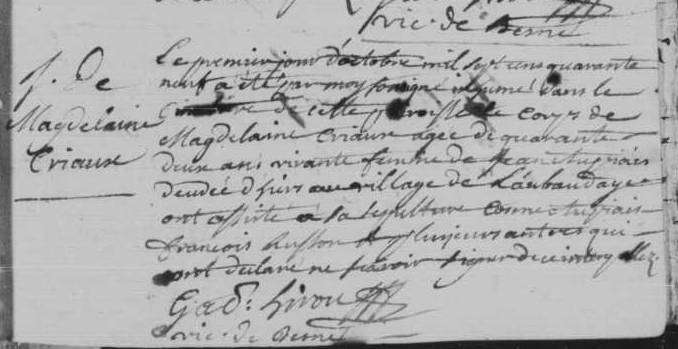 vic. de Berné
s. de
Magdelaine
Criaux
Le premier jour d'octobre mil sept cens quarante
neuf a été par moy soussigné inhumé dans le
Cimetiere de cette paroisse le corps de
Magdelaine Criaux agee de quarante
deux ans vivante femme de Jean
decedée d'hier au village de
ont assisté a sa sepulture
François husson et plusieurs autres qui
ont declaré ne scavoir signer de ce interpellez
vic. de Berné